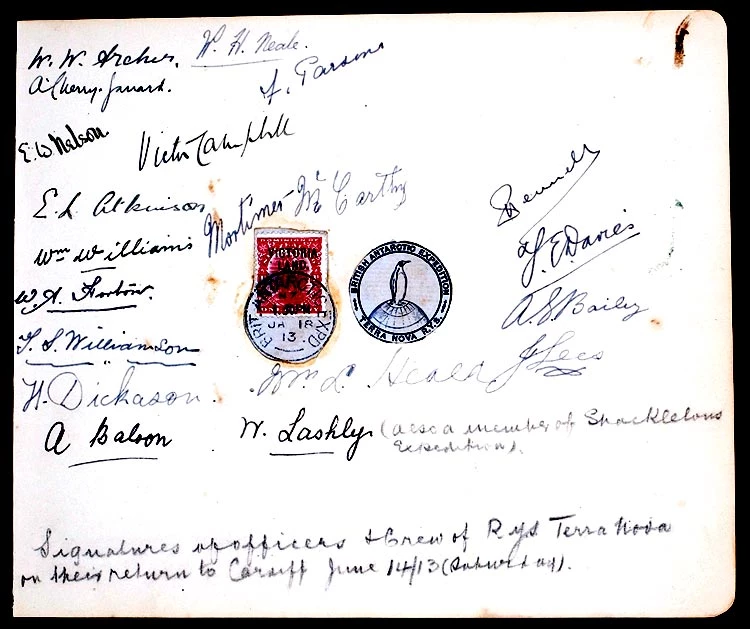 W. W. Archer. W. H. Neale.
A. Cherry-Garrard. F. Parsons
E. W Nelson Victor Campbell
E. L. Atkinson Mortimer McCarthy Pennell
Wm Williams F. E Davies
W. A. Horton.
VICTORIA
LAND
BRIT. ANTARCTIC EXPD
JA 18
13
BRITISH ANTARCTIC EXPEDITION
TERRA NOVA R.Y.S.
A. S Baily
T. S. Williamson J Lees
H. Dickason. Wm L. Heald
A Balson W. Lashly (also a member of Shackletons
Expedition).
Signatures of officers & Crew of RYS Terra Nova
on their return to Cardiff June 14/13 (Saturday).